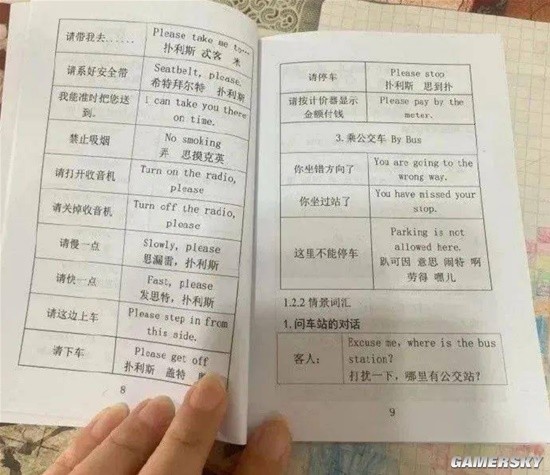 请带我去......
Please take me to...
扑利斯 忒客 米
请系好安全带
Seatbelt, please.
希特拜尔特 扑利斯
我能准时把您送
到.
I can take you there
on time.
禁止吸烟
No smoking
弄 思摸克英
请打开收音机
Turn on the radio,
please
请关掉收音机
Turn off the radio,
please
请慢一点
Slowly, please
思漏雷, 扑利斯
请快一点
Fast, please
发思特, 扑利斯
请这边上车
Please step in from
this side.
请下车
Please get off
扑利斯 盖特
8
请停车
Please stop
扑利斯 思到扑
请按计价器显示
金额付钱
Please pay by the
meter.
3. 乘公交车 By Bus
你坐错方向了
You are going to the
wrong way.
你坐过站了
You have missed your
stop.
这里不能停车
Parking is not
allowed here.
趴可因 意思 闹特 啊
劳得 嘿儿
1.2.2 情景词汇
1. 问车站的对话
客人:
Excuse me, where is the bus
station?
打扰一下, 哪里有公交站?
9
GAMERSKY